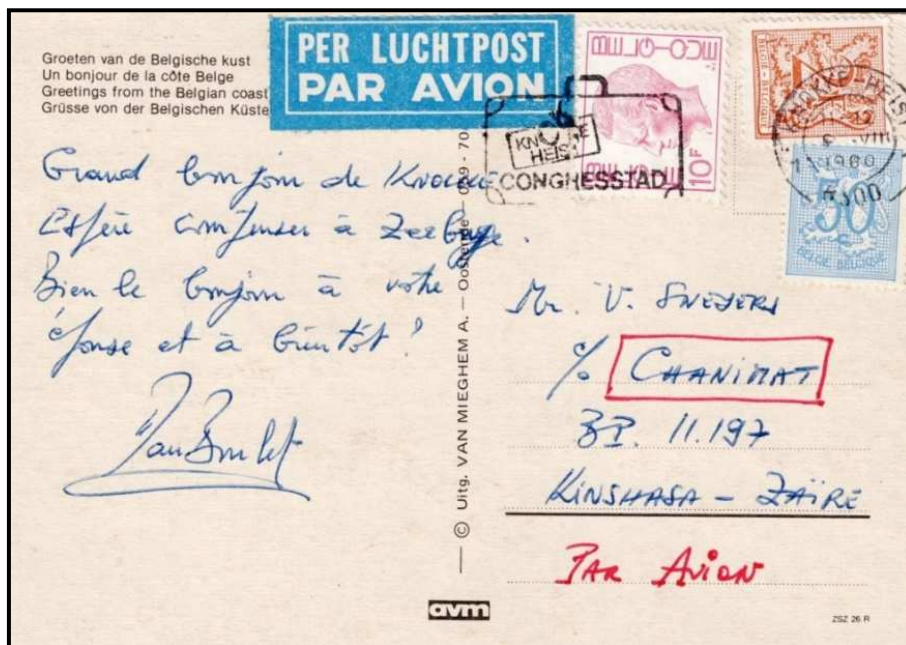 Groeten van de Belgische kust
Un bonjour de la côte Belge
Greetings from the Belgian coast
Grüsse von der Belgischen Küste
PER LUCHTPOST
PAR AVION
10F
KNOKKE
HEIST
CONGRESSTAD
KNOKKE-HEIST
1980
8300
50
c
BELGIE BELGIQUE
Grand bonjour de KNOKKE
Espère à Zeebruge.
Bien le bonjour à votre
épouse et à bientôt!
© Uitg. VAN MIEGHEM A. — Oostende — 059 - 70
Mr. V. SNEYERS
c/o CHANIMAT
BP. 11.197
KINSHASA - ZAÏRE
PAR AVION
avm
ZSZ 26 R